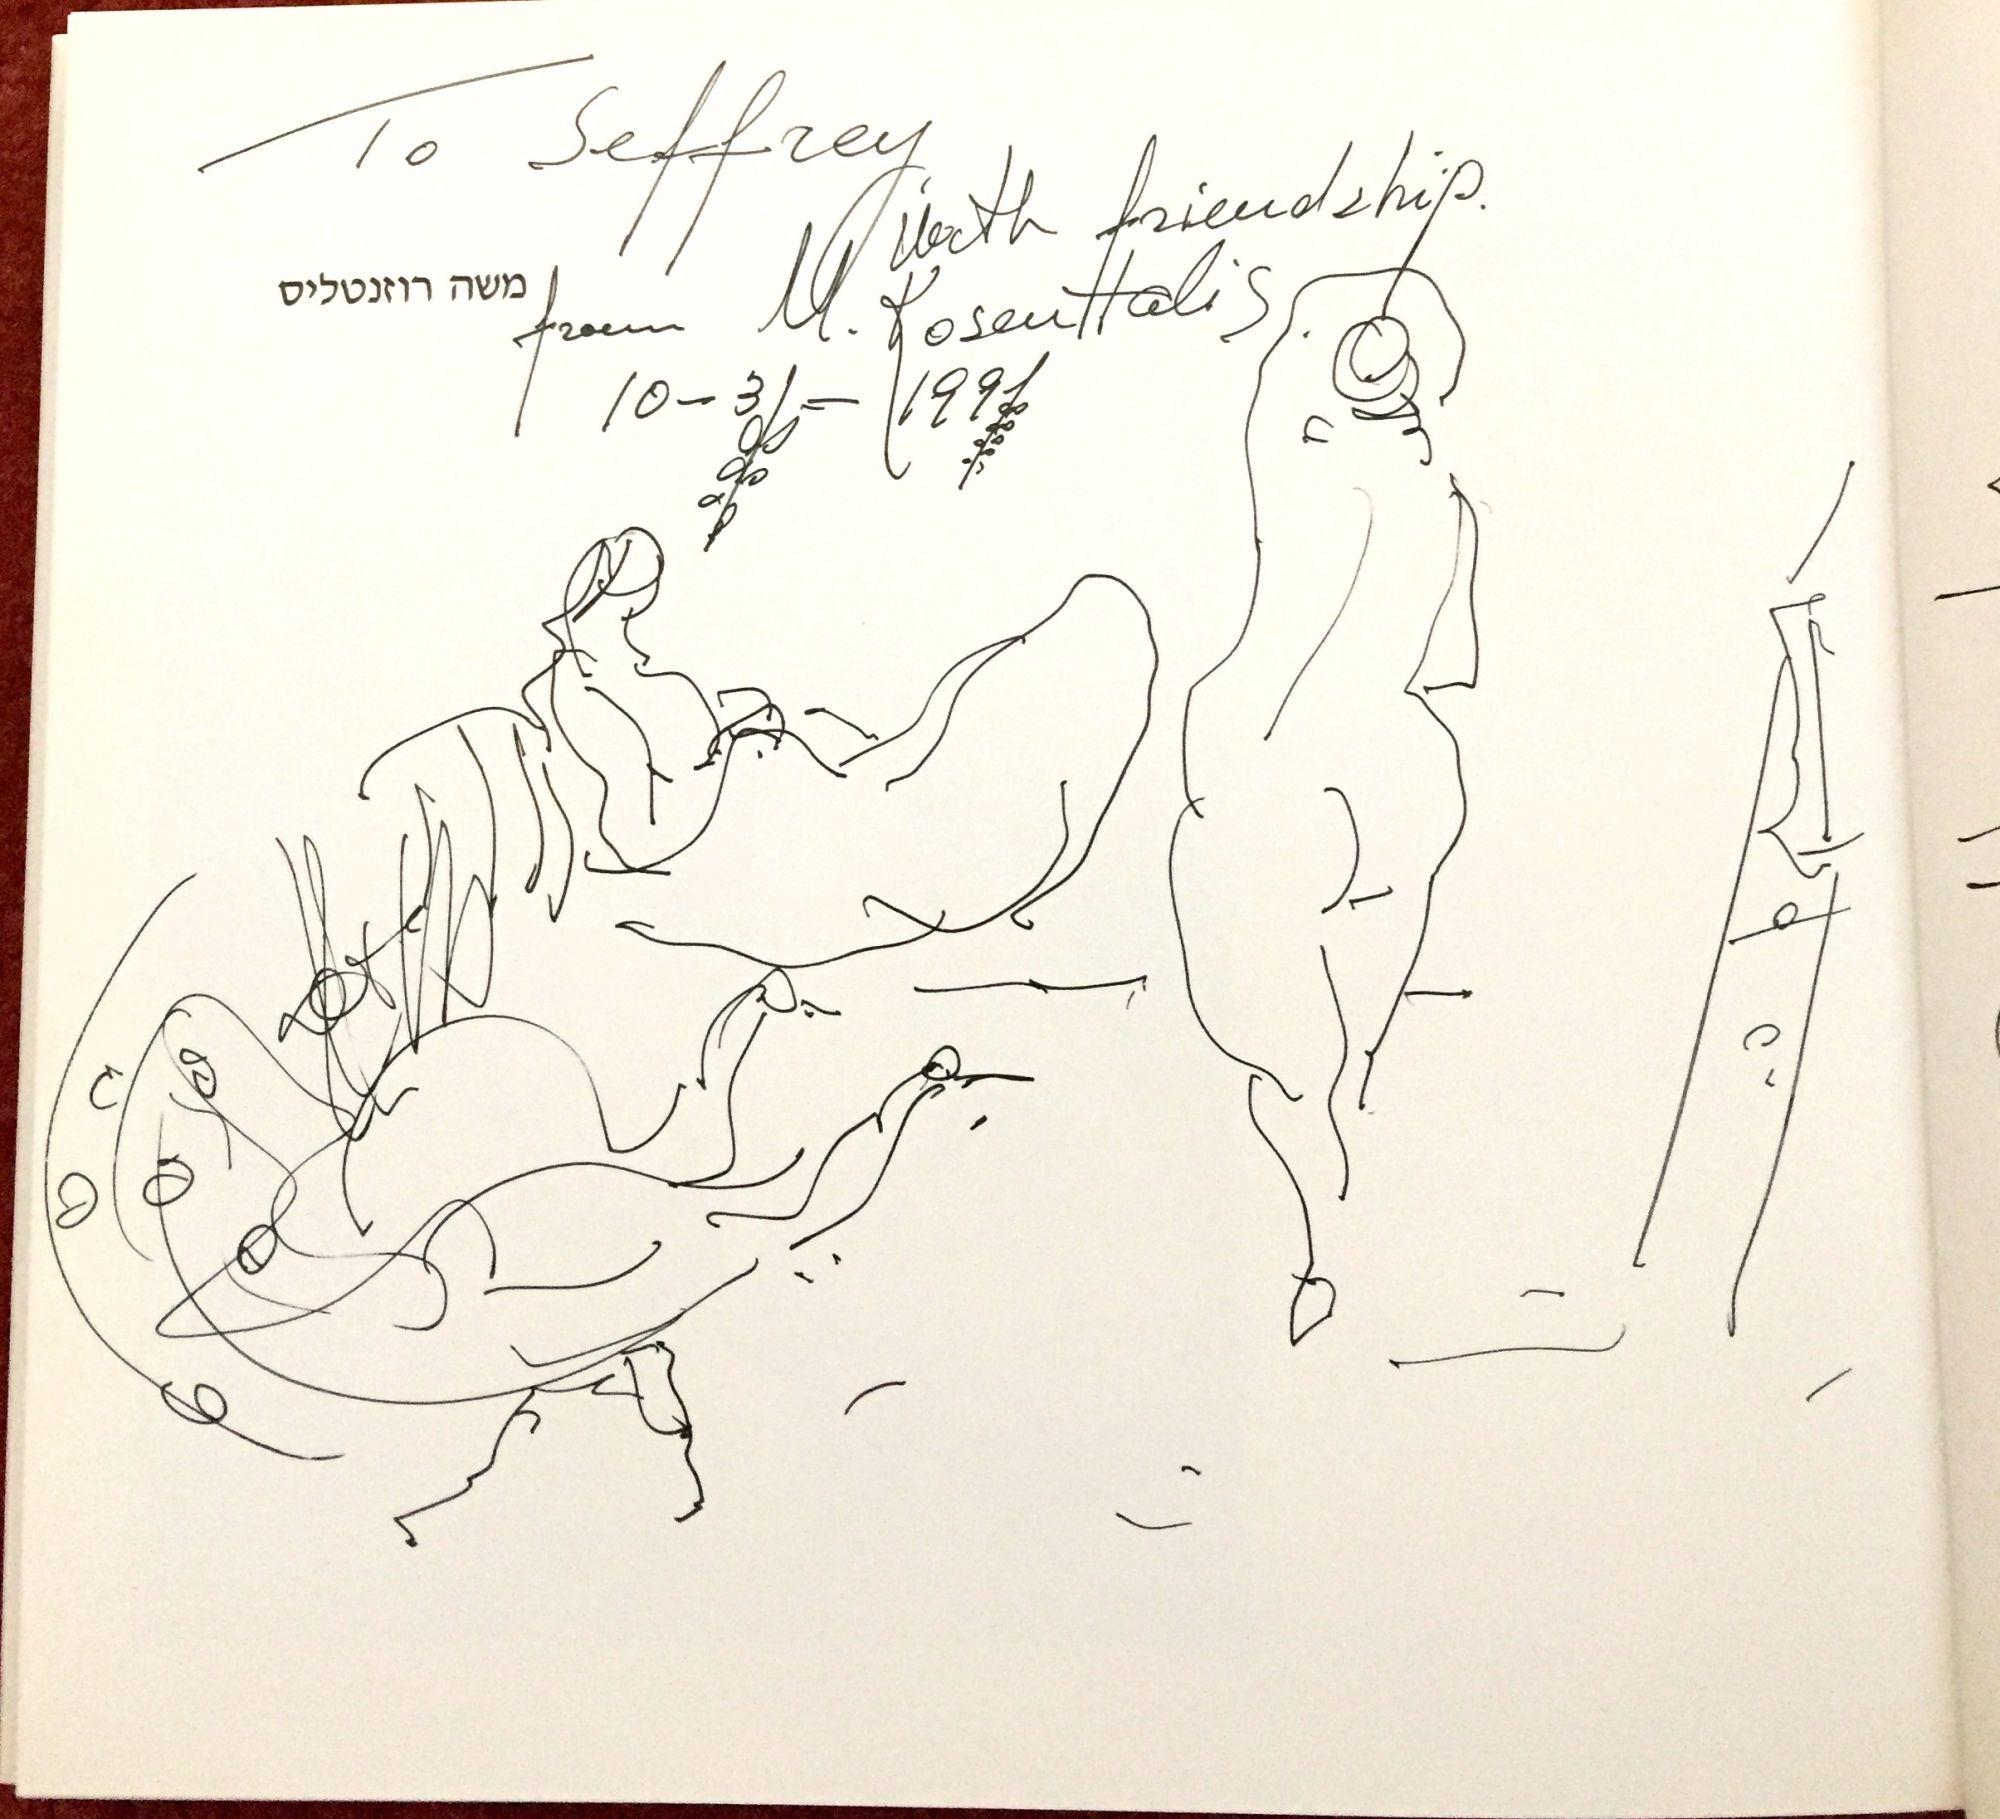 To Seffrey
With friendship.
משה רוזנטליס
from M. Rosenttalis.
10-31-1991